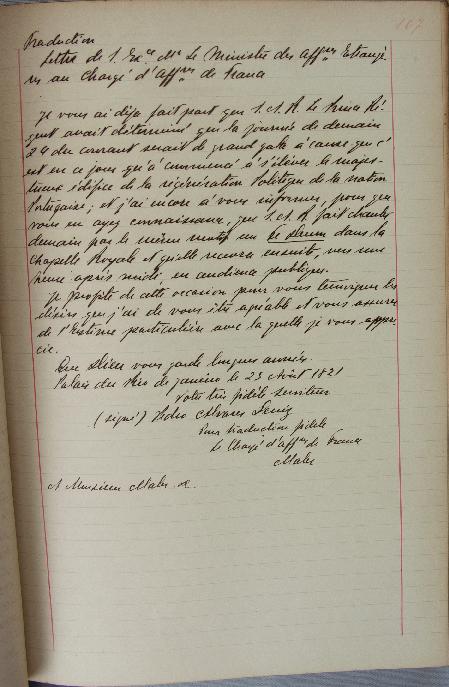 167
Traduction
Lettre de S. Exce Mr Le Ministre des Affres Etrangè-
res au Chargé d'Affres de France
Je vous ai déja fait part que S. A. R. Le Prince Ré-
gent avait déterminé que la journée de demain
24 du courant serait de grand gala à cause que c'
est en ce jour qu'a commencé à s'élever le majes-
tueux édifice de la régénération Politique de la nation
Portugaise; et j'ai encore à vous informer, pour que
vous en ayez connaissance, que S. A. R. fait chanter
demain par le même motif un Te Deum dans la
Chapelle Royale et qu'elle recevra ensuite, vers une
heure après midi, en audience publique.
Je profite de cette occasion pour vous témoigner les
désirs que j'ai de vous être agréable et vous assurer
de l'Estime particulière avec laquelle je vous appré-
cie.
Que Dieu vous garde longues années.
Palais du Rio de Janeiro le 23 Août 1821
Votre très fidèle serviteur
(signé) Pedro Alvares Diniz
Pour traduction fidèle
Le Chargé d'Affres de France
Maler
A Monsieur Maler